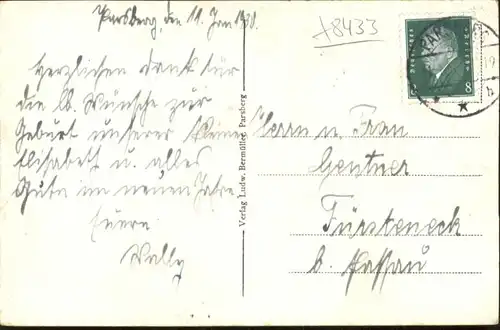 Parsberg, den 11. Jan 1930.
+8433
Herzlichen Dank für
die lb. Wünsche zur
Geburt unserer kleinen
Elisabeth u. alles
Gute im neuen Jahre.
Euere
Wally
Verlag Ludw. Bermüller, Parsberg
Herrn u. Frau
Gentner
Fürsteneck
b. Passau
Deutsches Reich
8 8
PAR